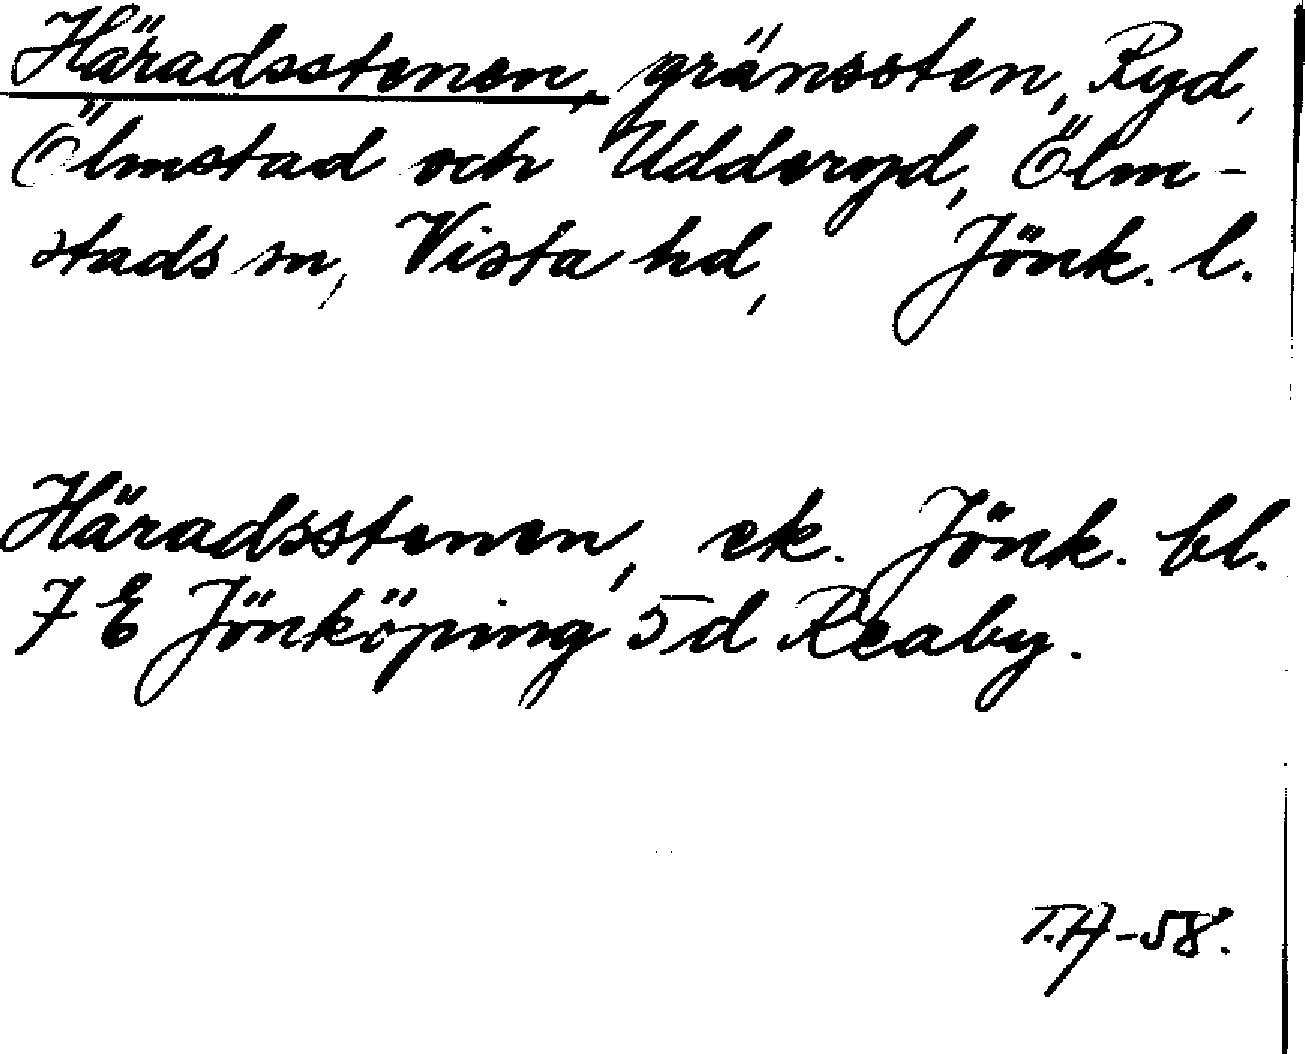 Häradsstenen, gränssten, Ryd,
Ölmstad och Udderyd, Ölm-
stads sn, Vista hd, Jönk. l.
Häradsstenen, ek. Jönk. bl.
7 E Jönköping 5d Reaby.
T.H-58.